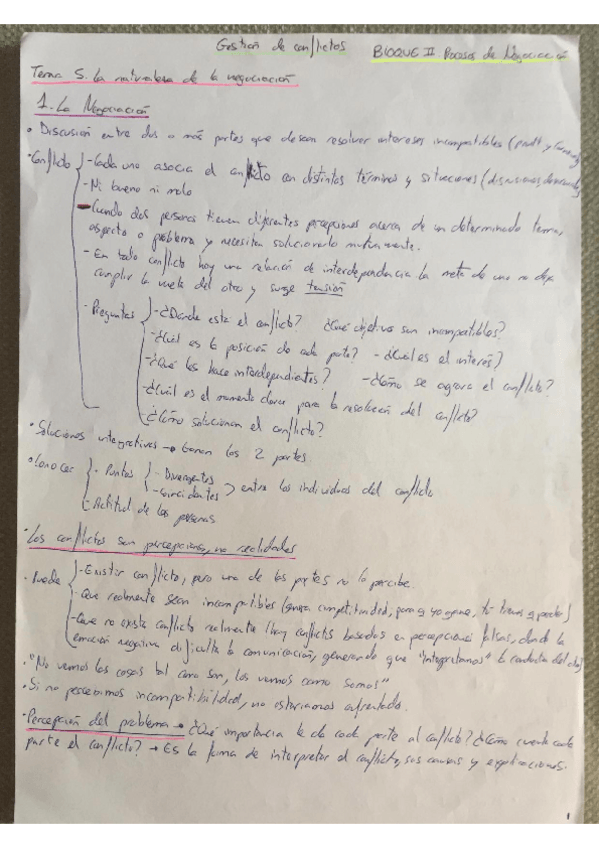 Gestión de conflictos BLOQUE II. Procesos de Negociación
Tema 5. La naturaleza de la negociación
1. La Negociación
• Discusión entre dos o más partes que desean resolver intereses incompatibles (
• Conflicto - Cada uno asocia el conflicto con distintos términos y situaciones (discusiones,
- Ni bueno ni malo
- Cuando dos personas tienen diferentes percepciones acerca de un determinado tema,
aspecto o problema y necesitan solucionarlo mutuamente.
- En todo conflicto hay una relación de interdependencia la meta de uno no deja
cumplir la del otro y surge tensión
- Preguntas - ¿Dónde está el conflicto? ¿Qué objetivos son incompatibles?
- ¿Cuál es la posición de cada parte? - ¿Cuál es el interés?
- ¿Qué los hace interdependientes? - ¿Cómo se agrava el conflicto?
- ¿Cuál es el momento clave para la resolución del conflicto?
- ¿Cómo solucionan el conflicto?
• Soluciones integrativas → ganan las 2 partes
• Conocer - Puntos - Divergentes
- Coincidentes > entre los individuos del conflicto
- Actitud de las personas
• Los conflictos son percepciones, no realidades
• Puede - Existir conflicto, pero una de las partes no lo percibe.
- Que realmente sean incompatibles (genera competitividad, para q yo gane, tú tienes q perder)
- Que no exista conflicto realmente (hay conflictos basados en percepciones falsas, donde la
emoción negativa dificulta la comunicación, generando que "interpretamos" la conducta del otro)
• "No vemos las cosas tal como son, las vemos como somos"
• Si no percibimos incompatibilidad, no estaríamos enfrentados.
• Percepción del problema → ¿Qué importancia le da cada parte al conflicto? ¿Cómo cuenta cada
parte el conflicto? → Es la forma de interpretar el conflicto, sus causas y explicaciones.
1